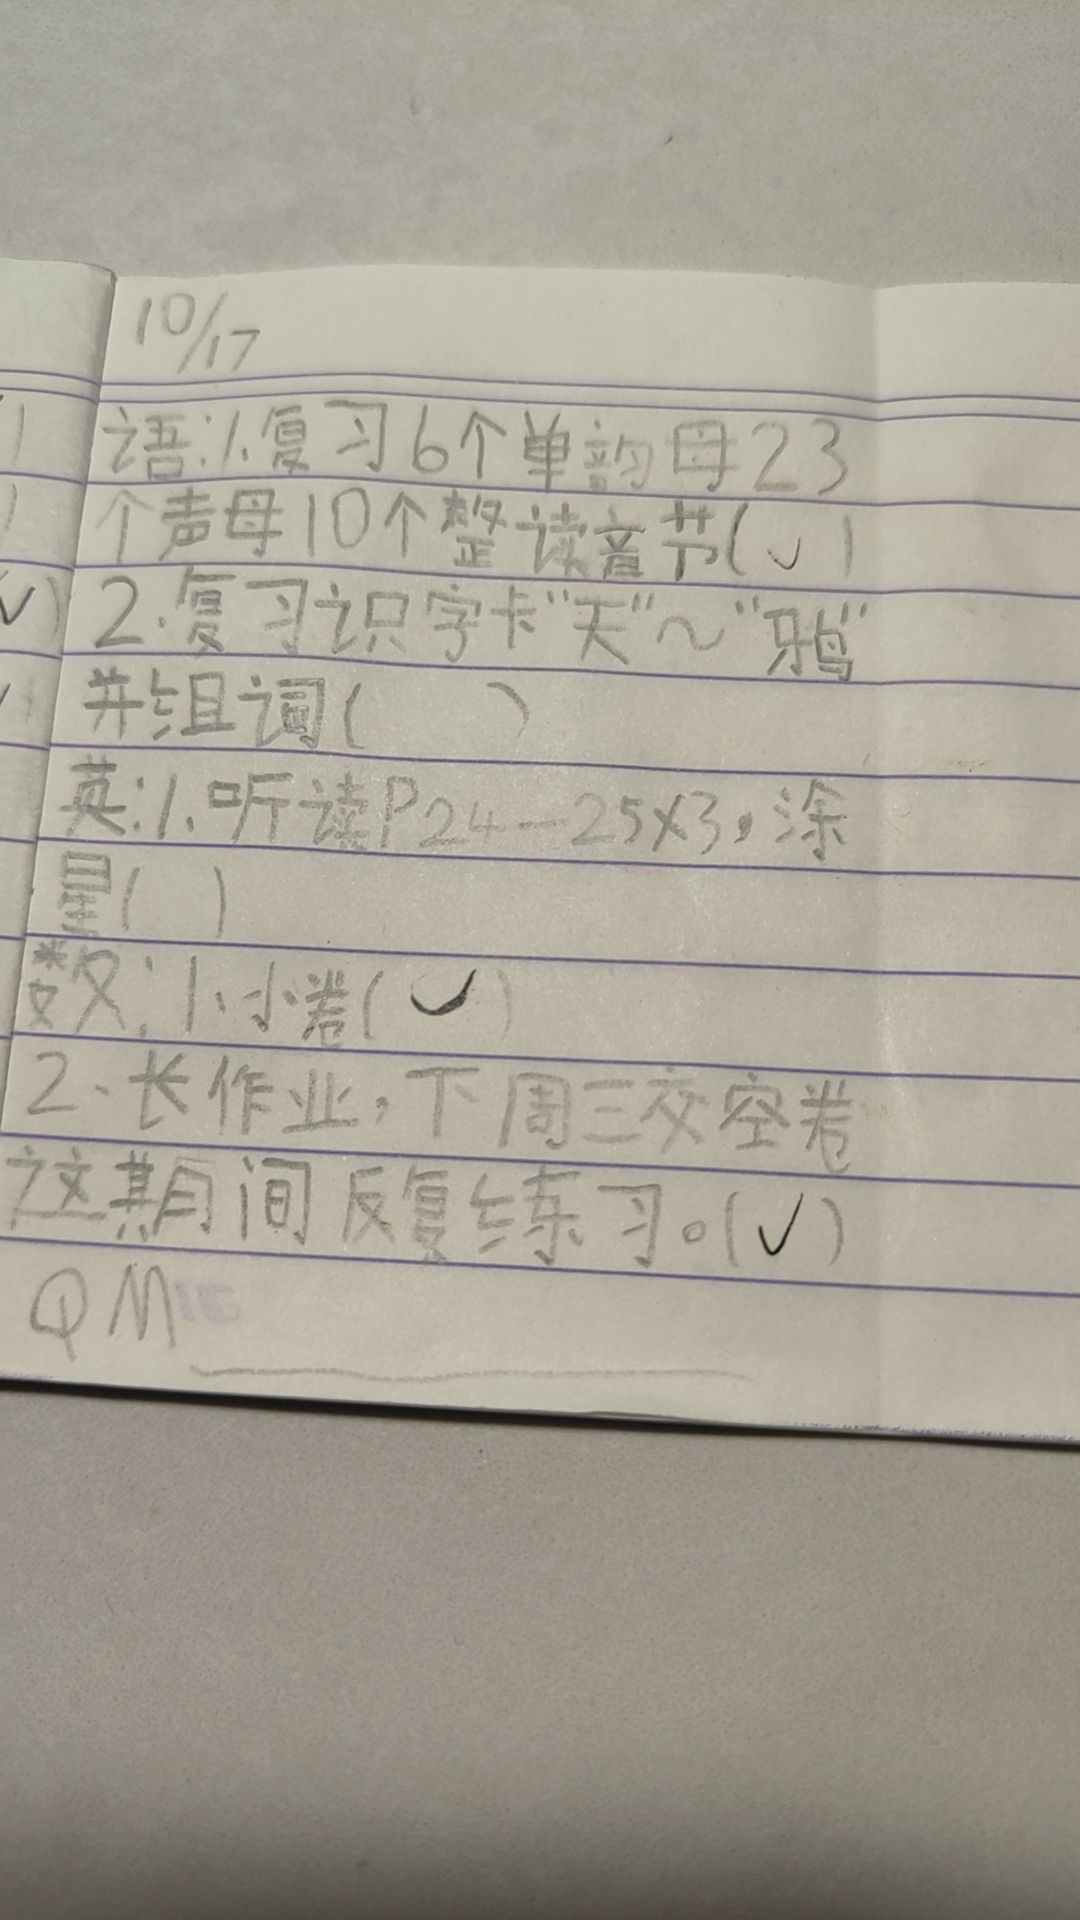 10/17
语:1.复习6个单韵母23
个声母10个整读音节(✓)
2.复习识字卡"天"~"鸦"
并组词( )
英:1.听读P24—25×3,涂
星( )
数:1.小卷(✓)
2.长作业,下周三交空卷
这期间反复练习。(✓)
QM